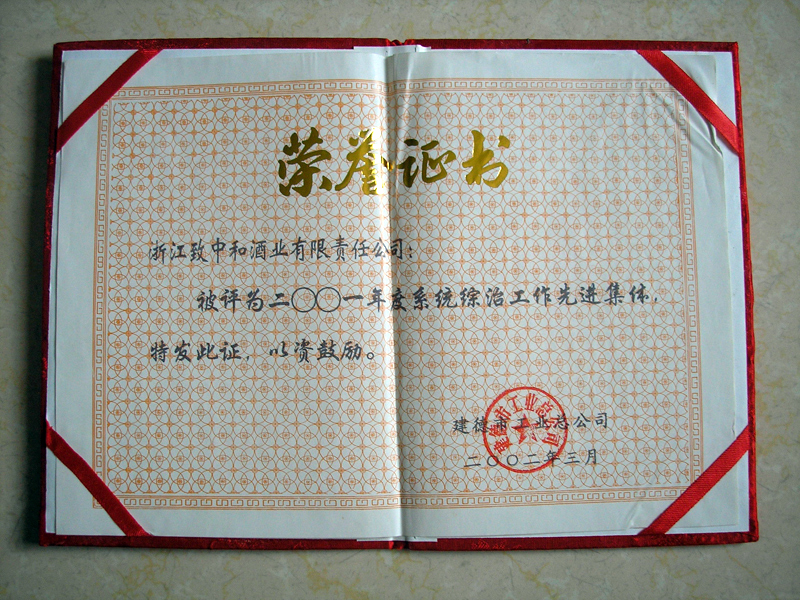 荣誉证书
浙江致中和酒业有限责任公司：
被评为二〇〇一年度系统综治工作先进集体，
特发此证，以资鼓励。
建德市工业总公司
二〇〇二年三月
建德市工业总公司